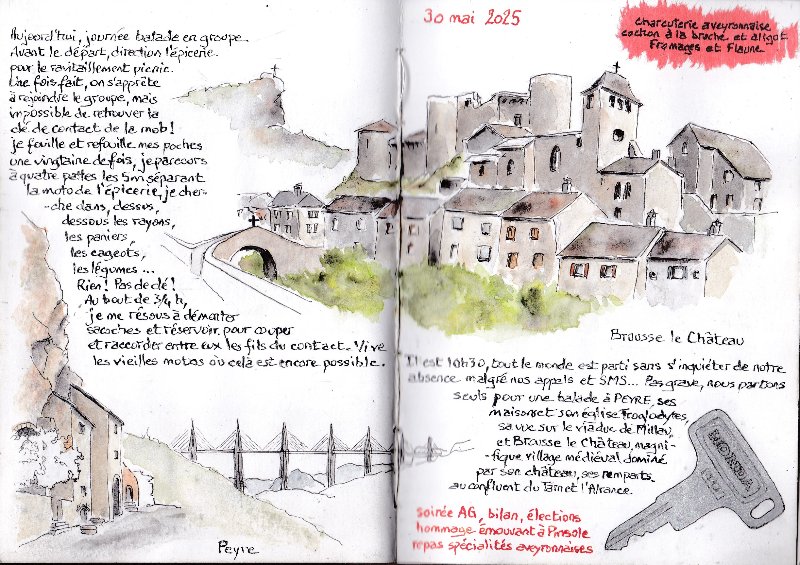 Aujourd'hui, journée balade en groupe.
Avant le départ, direction l'épicerie
pour le ravitaillement picnic.
Une fois fait, on s'apprête
à rejoindre le groupe, mais
impossible de retrouver la
clé de contact de la mob!
je fouille et refouille mes poches
une vingtaine de fois, je parcours
à quatre pattes les 5m séparant
la moto de l'épicerie, je cher-
-che dans, dessus,
dessous les rayons,
les paniers,
les cageots,
les légumes...
Rien! Pas de clé!
Au bout de 3/4 h,
je me résous à démonter
sacoches et réservoir pour couper
et raccorder entre eux les fils du contact. Vive
les vieilles motos où cela est encore possible.
Peyre
30 mai 2025
Charcuterie aveyronnaise
cochon à la broche et aligot
Fromages et Flaune
Brousse le Château
Il est 10h30, tout le monde est parti sans s'inquiéter de notre
absence malgré nos appels et SMS... Pas grave, nous partons
seuls pour une balade à PEYRE, ses
maisons et son église troglodytes,
sa vue sur le viaduc de Millau,
et Brousse le Château, magni-
-fique village médiéval dominé
par son château, ses remparts
au confluent du Tarn et l'Alrance.
HONDA
soirée AG, bilan, élections
hommage émouvant à Pinsole
repas spécialités aveyronnaises